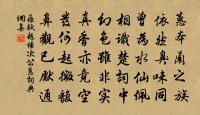 蕙本蘭之族
依然臭味同
曾為水仙佩
相識楚詞中
幻色雖非實
真香亦竟空
雲何起微馥
鼻觀已先通
蘇軾題楊次公蕙詞典
網集